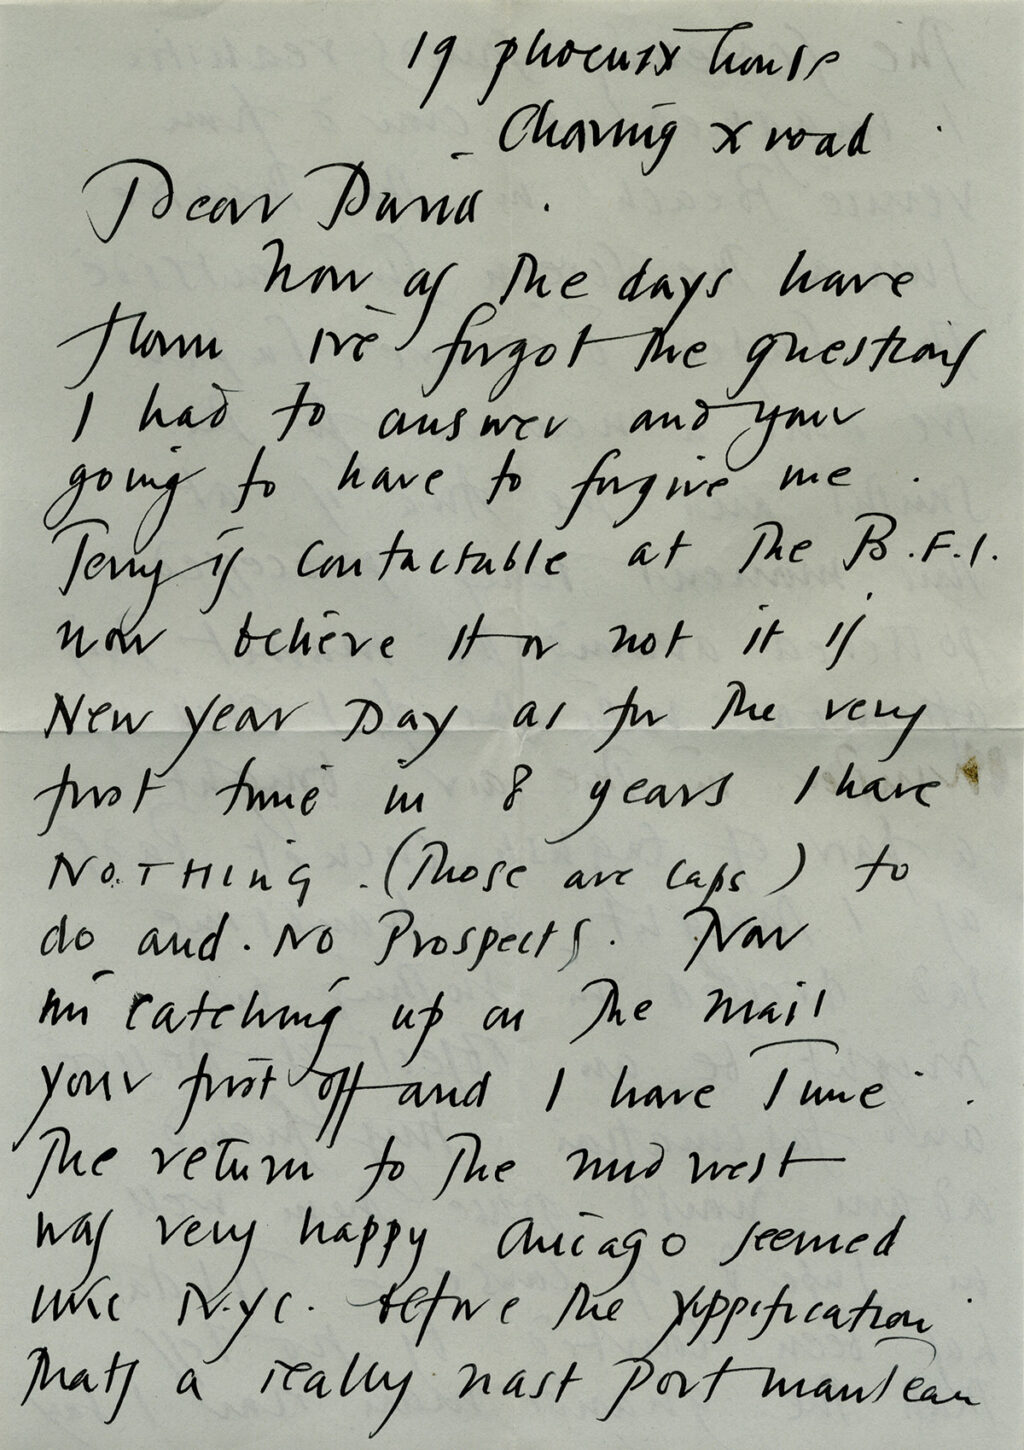 19 phoenix house
Charing x road
Dear David
how as the days have
flown ive forgot the questions
I had to answer and your
going to have to forgive me.
Terry is contactable at The B.F.I.
now believe it or not it is
New year Day as for the very
first time in 8 years I have
NOTHING. (Those are caps) to
do and. No Prospects. Now
im catching up on The mail
your first off and I have Time.
The return to The mid west
was very happy Chicago seemed
like N.y.c. before the yuppification
Thats a really nast Port manteau